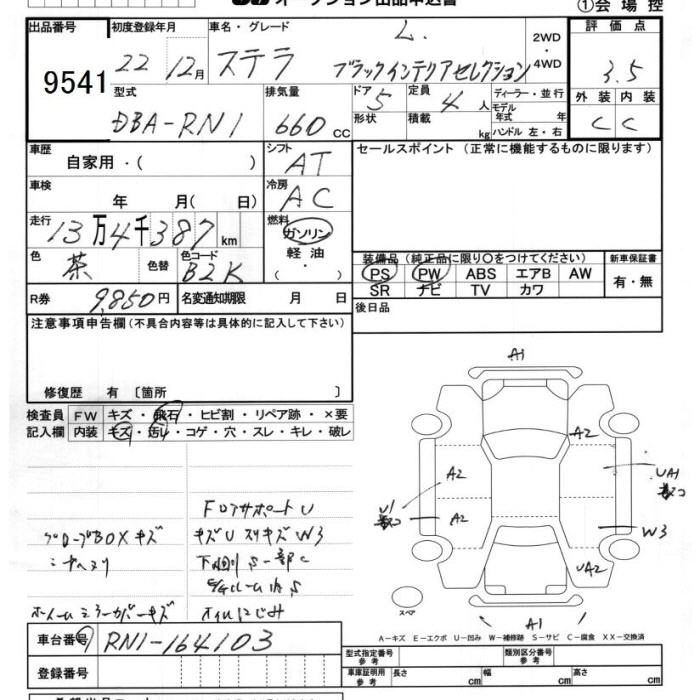 オークション出品申込書
①会場控
出品番号 初度登録年月 車名・グレード 評価点
9541 22 12月 ステラ L. ブラックインテリアセレクション 2WD・4WD 3.5
型式 排気量 ドア 定員 ディーラー・並行 外装 内装
DBA-RN1 660cc 5 4人 モデル年式 年 C C
形状 積載 kg ハンドル 左・右
車歴 シフト セールスポイント (正常に機能するものに限ります)
自家用・( ) AT
車検 冷房
年 月( 日) AC
走行 燃料
13万4千387km ガソリン
軽油
色 色替 色コード 装備品 (純正品に限り○をつけてください) 新車保証書
茶 B2K PS PW ABS エアB AW 有・無
SR ナビ TV カワ
R券 9,850円 名変通知期限 月 日 後日品
注意事項申告欄(不具合内容等は具体的に記入して下さい)
修復歴 有 〔箇所 〕
検査員 FW キズ・飛石・ヒビ割・リペア跡・×要
記入欄 内装 キズ・汚レ・コゲ・穴・スレ・キレ・破レ
A1
A2
A2 UA1
U1
A2 W3
UA2
スペア A1
FロアサポートU
グローブBOXキズ キズU スリキズ W3
下廻りS一部C
ホイールミラーカバーキズ オイルにじみ
A-キズ E-エクボ U-凹み W-補修跡 S-サビ C-腐食 XX-交換済
車台番号 RN1-164103
型式指定番号 参考 類別区分番号 参考
登録番号 車庫証明用 参考 長さ cm 幅 cm 高さ cm